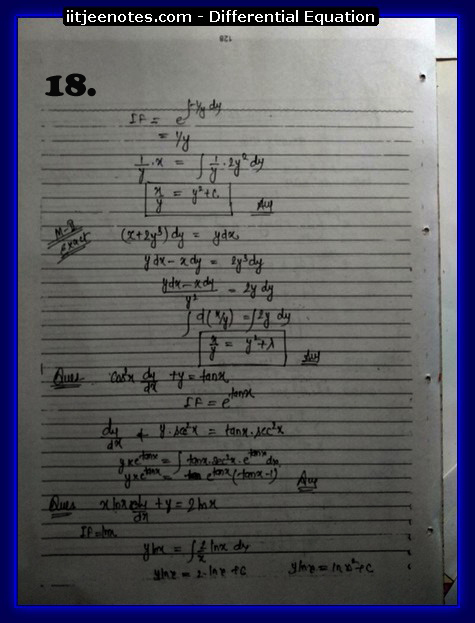 iitjeenotes.com - Differential Equation
128
18.
IF = e^∫-1/y dy
= 1/y
1/y · x = ∫ 1/y · 2y² dy
x/y = y² + c. Ans
M-2 Exact (x+2y³) dy = y dx
y dx - x dy = 2y³ dy
(y dx - x dy)/y² = 2y dy
∫ d(x/y) = ∫ 2y dy
x/y = y² + λ Ans
Ques cos²x dy/dx + y = tanx
IF = e^tanx
dy/dx + y·sec²x = tanx·sec²x
y×e^tanx = ∫ tanx·sec²x·e^tanx dx
y×e^tanx = e^tanx (tanx-1) Ans
Ques x lnx dy/dx + y = 2lnx
IF = lnx
y lnx = ∫ 2/x lnx dx
y lnx = 2·lnx + c y lnx = lnx² + c